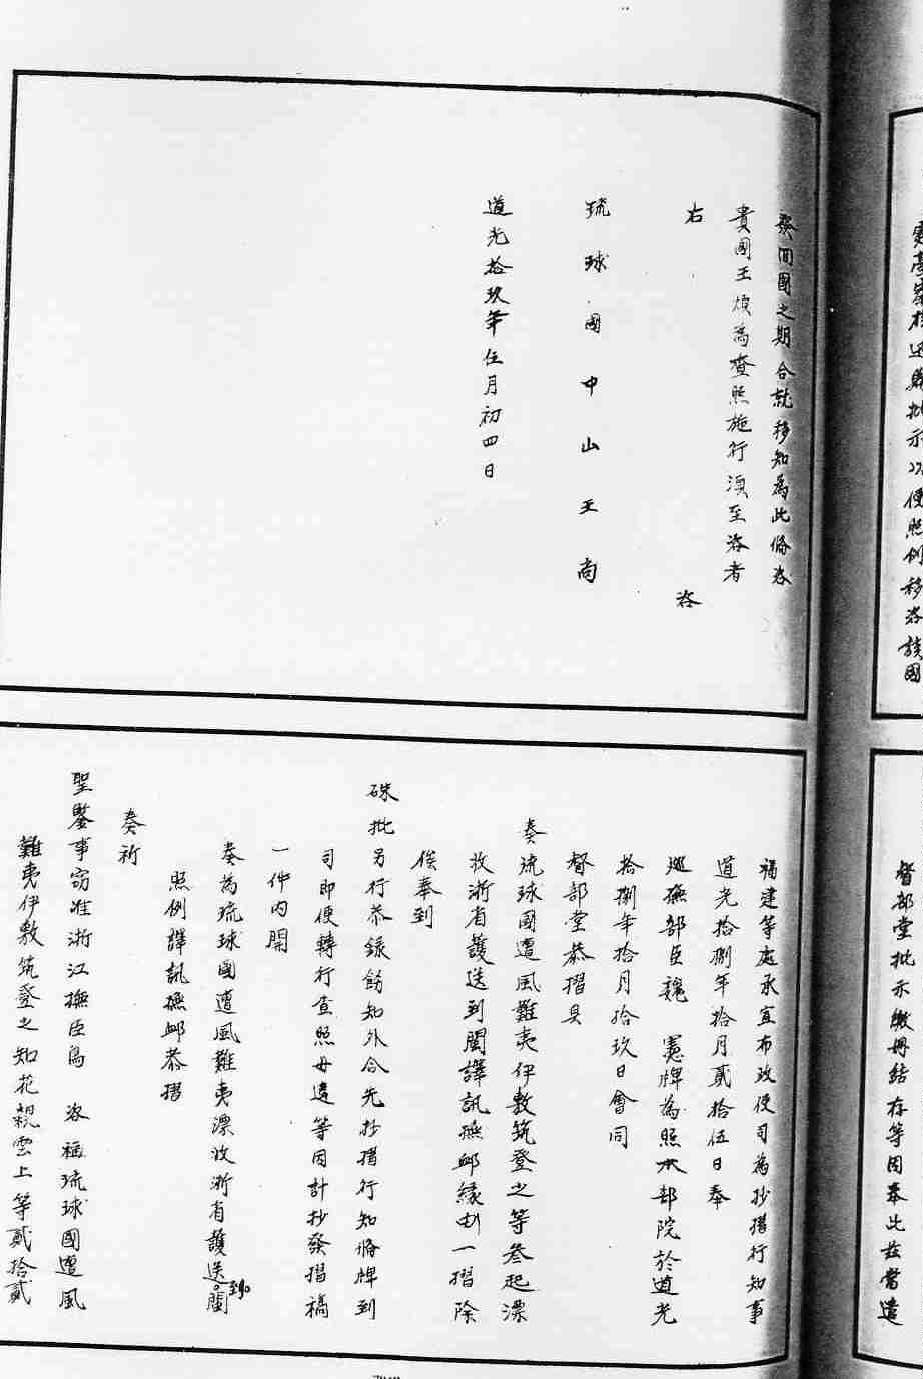 督部堂批示繳冊結存等因奉此茲當遣
發回國之期合就移知為此俻咨
貴國王煩為查照施行須至咨者
右咨
琉球國中山王尚
道光拾玖年伍月初四日
福建等處承宣布政使司為抄摺行知事
道光拾捌年拾月貳拾伍日奉
巡撫部臣魏 憲牌為照本部院於道光
拾捌年拾月拾玖日會同
督部堂恭摺具
奏琉球國遭風難夷伊敷筑登之等叁起漂
收浙省護送到閩譯訊撫邺緣由一摺除
俟奉到
硃批另行恭錄飭知外合先抄摺行知俻牌到
司即便轉行查照毋違等因計抄發摺稿
一件內開
奏為琉球國遭風難夷漂收浙省護送到閩
照例譯訊撫邺恭摺
奏祈
聖鑒事竊准浙江撫臣烏 咨稱琉球國遭風
難夷伊敷筑登之知花親雲上等貳拾貳